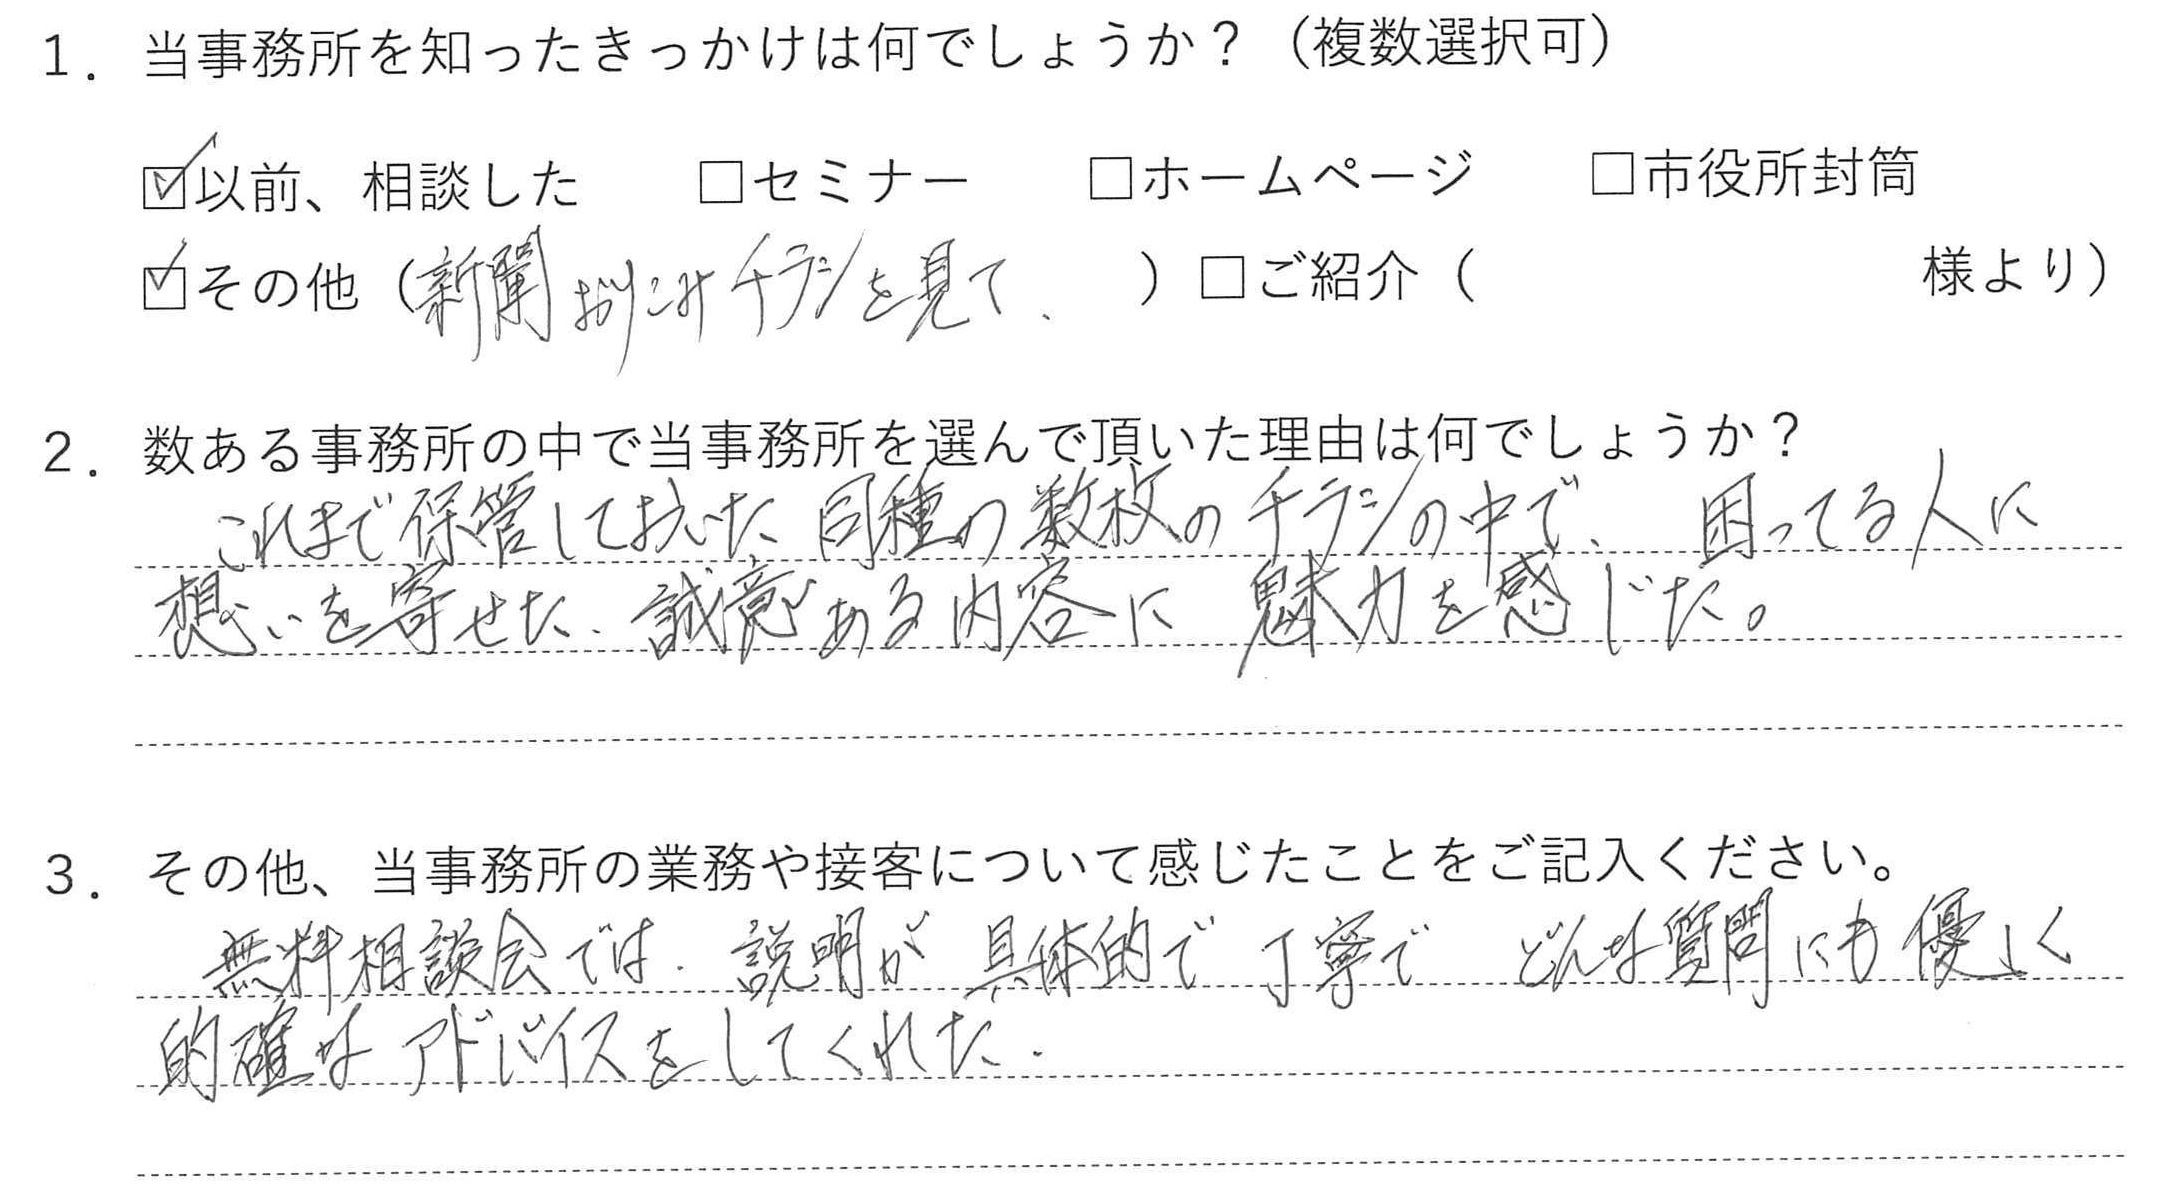 1．当事務所を知ったきっかけは何でしょうか？（複数選択可）
☑以前、相談した　□セミナー　□ホームページ　□市役所封筒
☑その他（新聞おりこみチラシを見て.　）□ご紹介（　様より）
2．数ある事務所の中で当事務所を選んで頂いた理由は何でしょうか？
これまで保管しておいた同種の数枚のチラシの中で、困ってる人に
想いを寄せた、誠意ある内容に魅力を感じた。
3．その他、当事務所の業務や接客について感じたことをご記入ください。
無料相談会では、説明が具体的で丁寧でどんな質問にも優しく
的確なアドバイスをしてくれた.